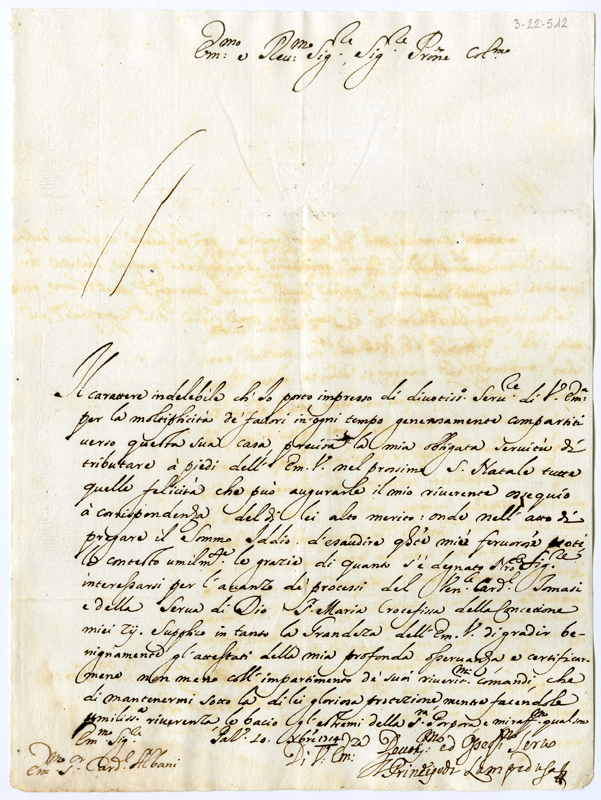 3-22-512
Em:mo e Reu:mo Sig.re, Sig.re Prõne Col.mo
Il carattere indelebile ch'Io porto impresso di divotiss.o Serv.re di V. Em:a
per la moltiplicità de' favori in ogni tempo generosamente compartiti
verso questa sua casa, precisa la mia obligata servitù di
tributare à piedi dell'Em. V. nel prossimo S. Natale tutte
quelle felicità che può augurarle il mio riverente ossequio
à corrispondenza del di lei alto merito: onde nell'atto di
pregare il Sommo Iddio d'esaudire q.sti miei fervorosi voti
le contesto umilm.te le grazie di quanto s'è degnato N.ro Sig.re
interessarsi per l'avanzo de' processi del Ven. Card. Tomasi
e della Serva di Dio Sr. Maria Crocefissa della Concezione
miei Zij. Supplico in tanto la Grandezza dell'Em. V. di gradir be-
nignamente gl'attestati della mia profonda osservanza e certificar-
meno non meno coll'impartimento de' suoi riverit.mi comandi, che
di mantenermi sotto la di lei gloriosa protezione mentre facendole
umiliss.a riverenza le bacio gl'estremi della S. Porpora e mi raff.mo qual sono
Em.mo Sig.re Pal.o 20. Xbre 1714
Di V. Em: Devot.mo ed Osseq.mo Servo
Em:mo Sr. Card. Albani
Il Principe di Lampedusa